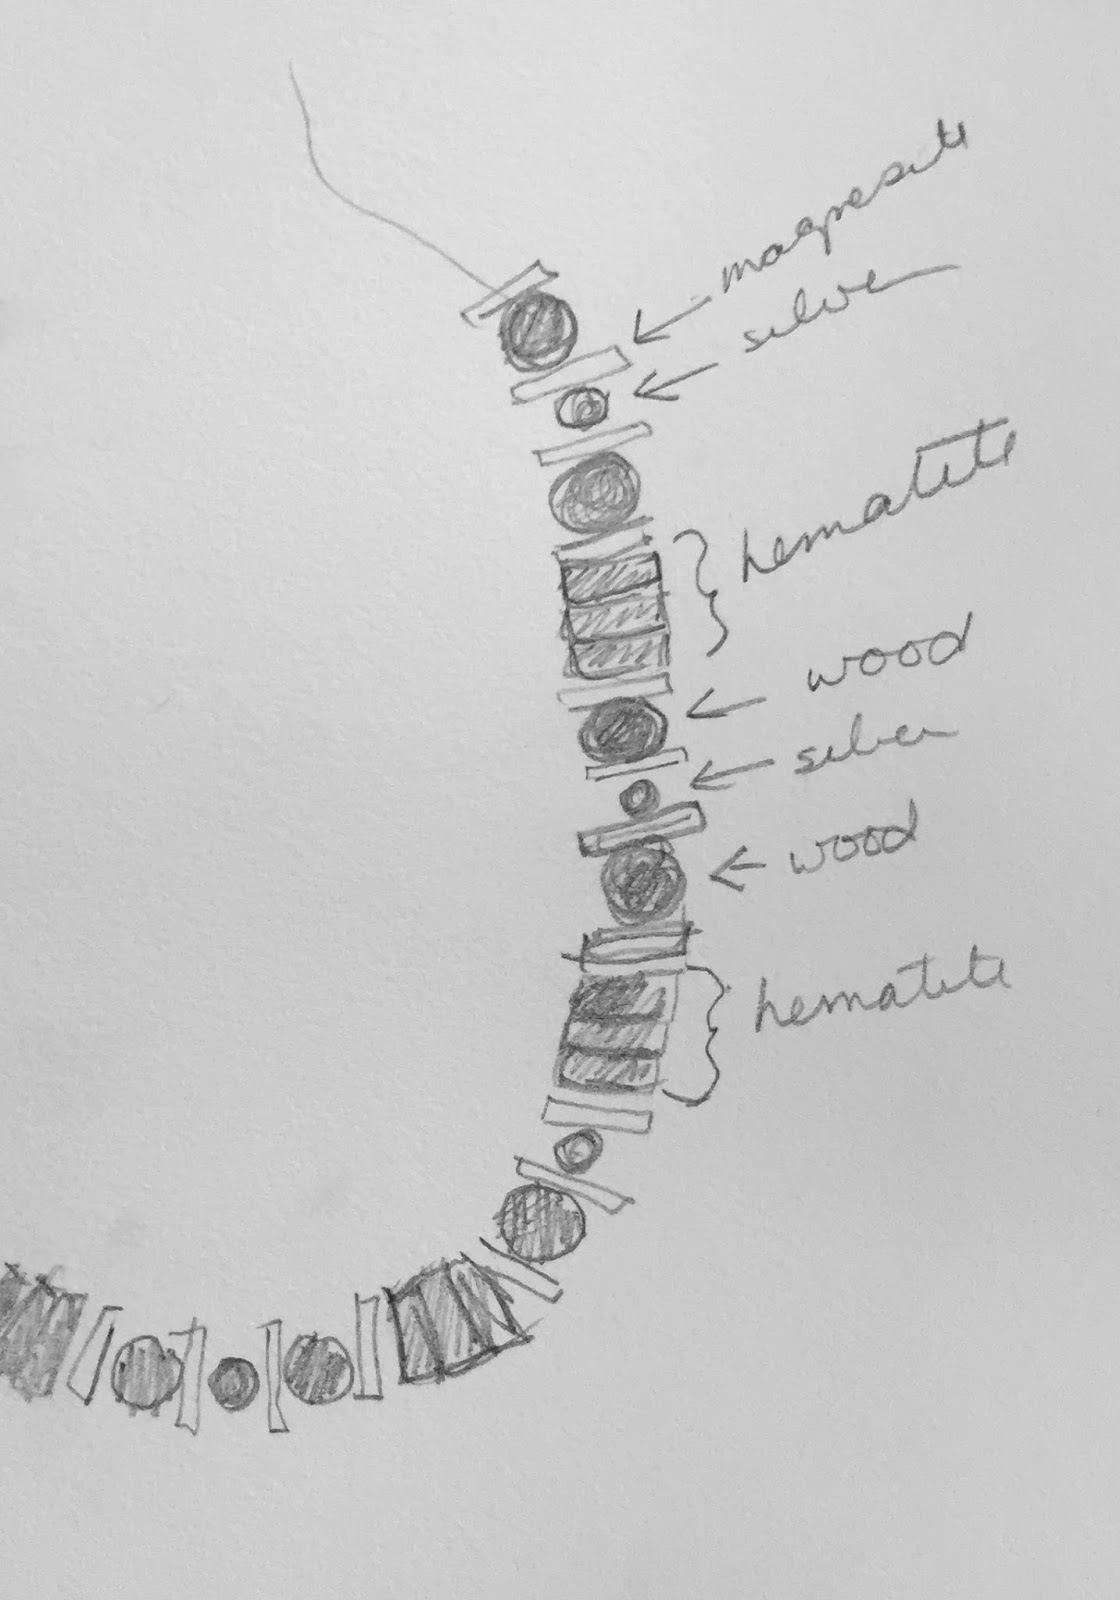 magnesite
silver
hematite
wood
silver
wood
hematite